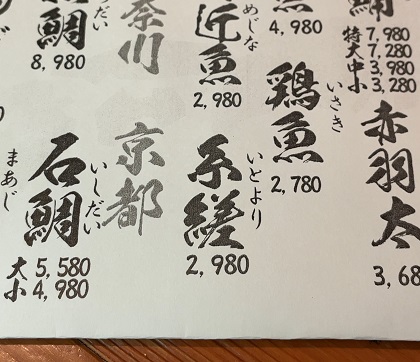 鯆
特大 7,980
大 7,280
中 3,980
小 3,280
赤羽太
3,68
4,980
いさき
鶏魚
2,780
めじな
近魚
2,980
いとより
糸縒
2,980
奈川
京都
だい
鯛
8,980
いしだい
石鯛
大 5,580
小 4,980
まあじ